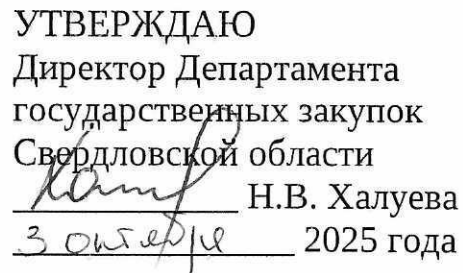 УТВЕРЖДАЮ
Директор Департамента
государственных закупок
Свердловской области
Н.В. Халуева
3 октября 2025 года